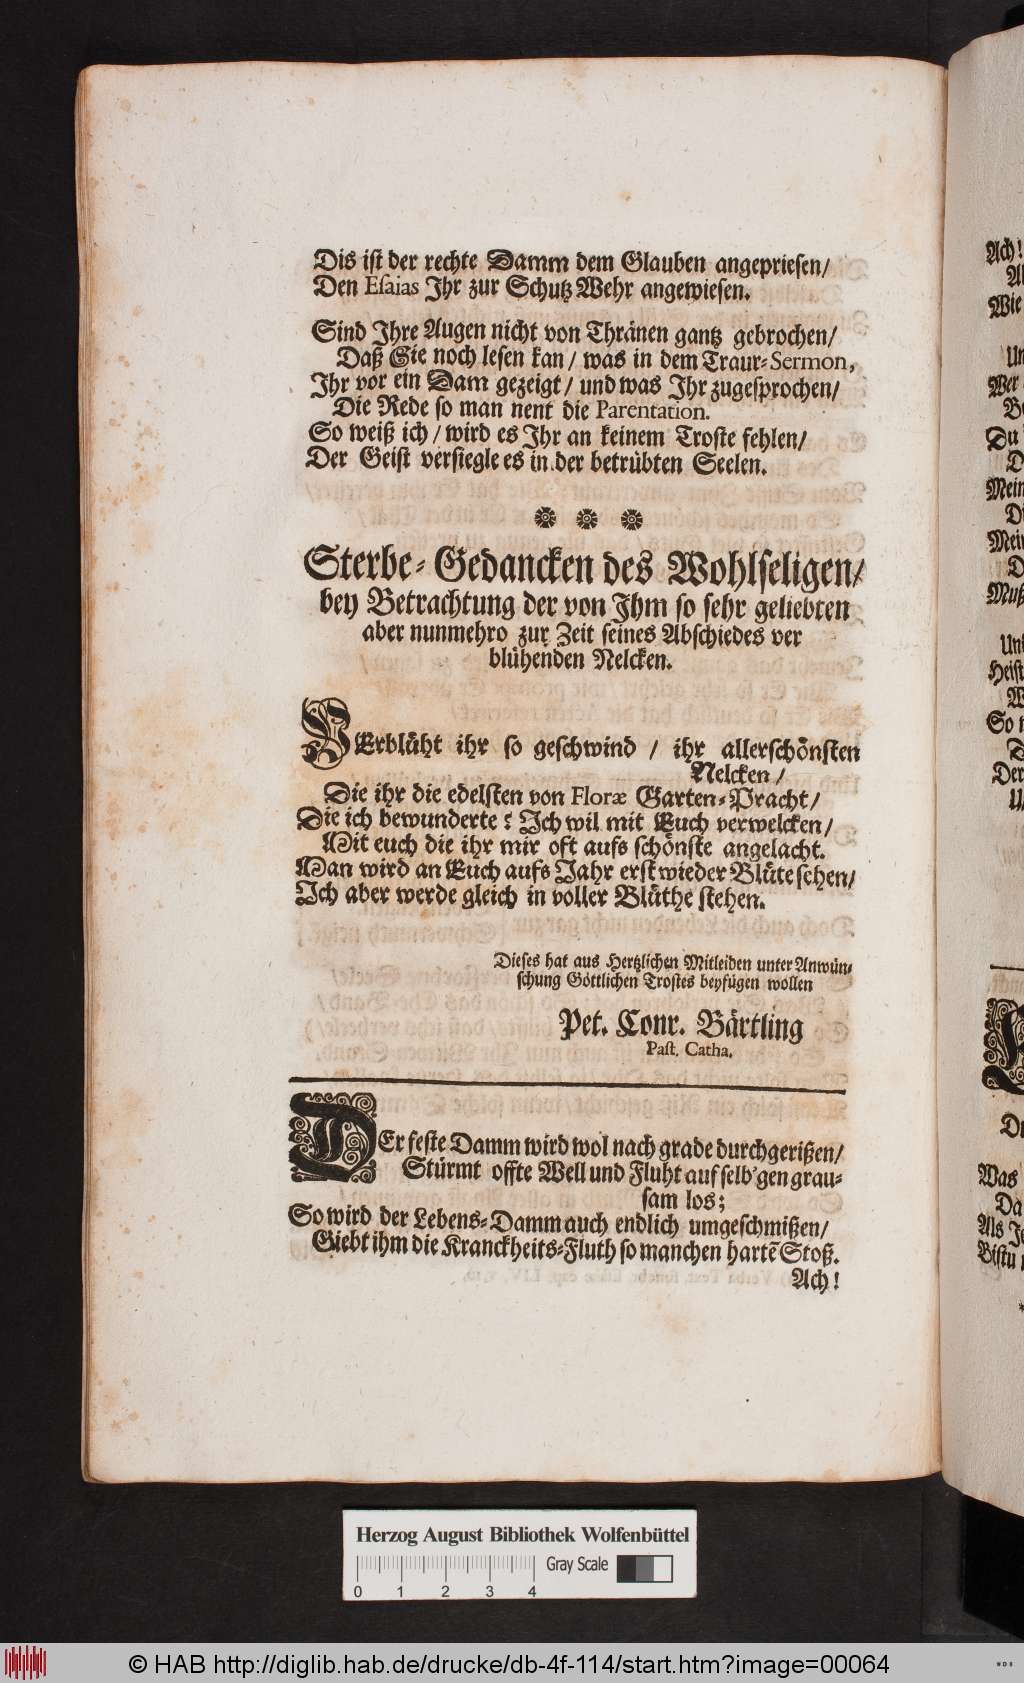 Dis ist der rechte Damm dem Glauben angepriesen/
Den Esaias Ihr zur Schutz Wehr angewiesen.
Sind Ihre Augen nicht von Thränen gantz gebrochen/
Daß Sie noch lesen kan/ was in dem Traur-Sermon,
Ihr vor ein Dam gezeigt/ und was Ihr zugesprochen/
Die Rede so man nent die Parentation.
So weiß ich/ wird es Ihr an keinem Troste fehlen/
Der Geist versiegle es in der betrübten Seelen.
Sterbe-Gedancken des Wohlseligen/
bey Betrachtung der von Ihm so sehr geliebten
aber nunmehro zur Zeit seines Abschiedes ver
blühenden Nelcken.
VErblüht ihr so geschwind / ihr allerschönsten
Nelcken/
Die ihr die edelsten von Floræ Garten-Pracht/
Die ich bewunderte? Ich wil mit Euch verwelcken/
Mit euch die ihr mir oft aufs schönste angelacht.
Man wird an Euch aufs Jahr erst wieder Blüte sehen/
Ich aber werde gleich in voller Blüthe stehen.
Dieses hat aus Hertzlichen Mitleiden unter Anwün-
schung Göttlichen Trostes beyfügen wollen
Pet. Conr. Bärtling
Past. Catha.
DEr feste Damm wird wol nach grade durchgerißen/
Stürmt offte Well und Fluht auf selb'gen grau-
sam los;
So wird der Lebens-Damm auch endlich umgeschmißen/
Giebt ihm die Kranckheits-Fluth so manchen harte͂ Stoß.
Ach!
Ach!
Wie
Wer
Du
Mein
Mein
Muß
So
Der
Was
Da
Als
Bistu
Herzog August Bibliothek Wolfenbüttel
Gray Scale
0 1 2 3 4
© HAB http://diglib.hab.de/drucke/db-4f-114/start.htm?image=00064